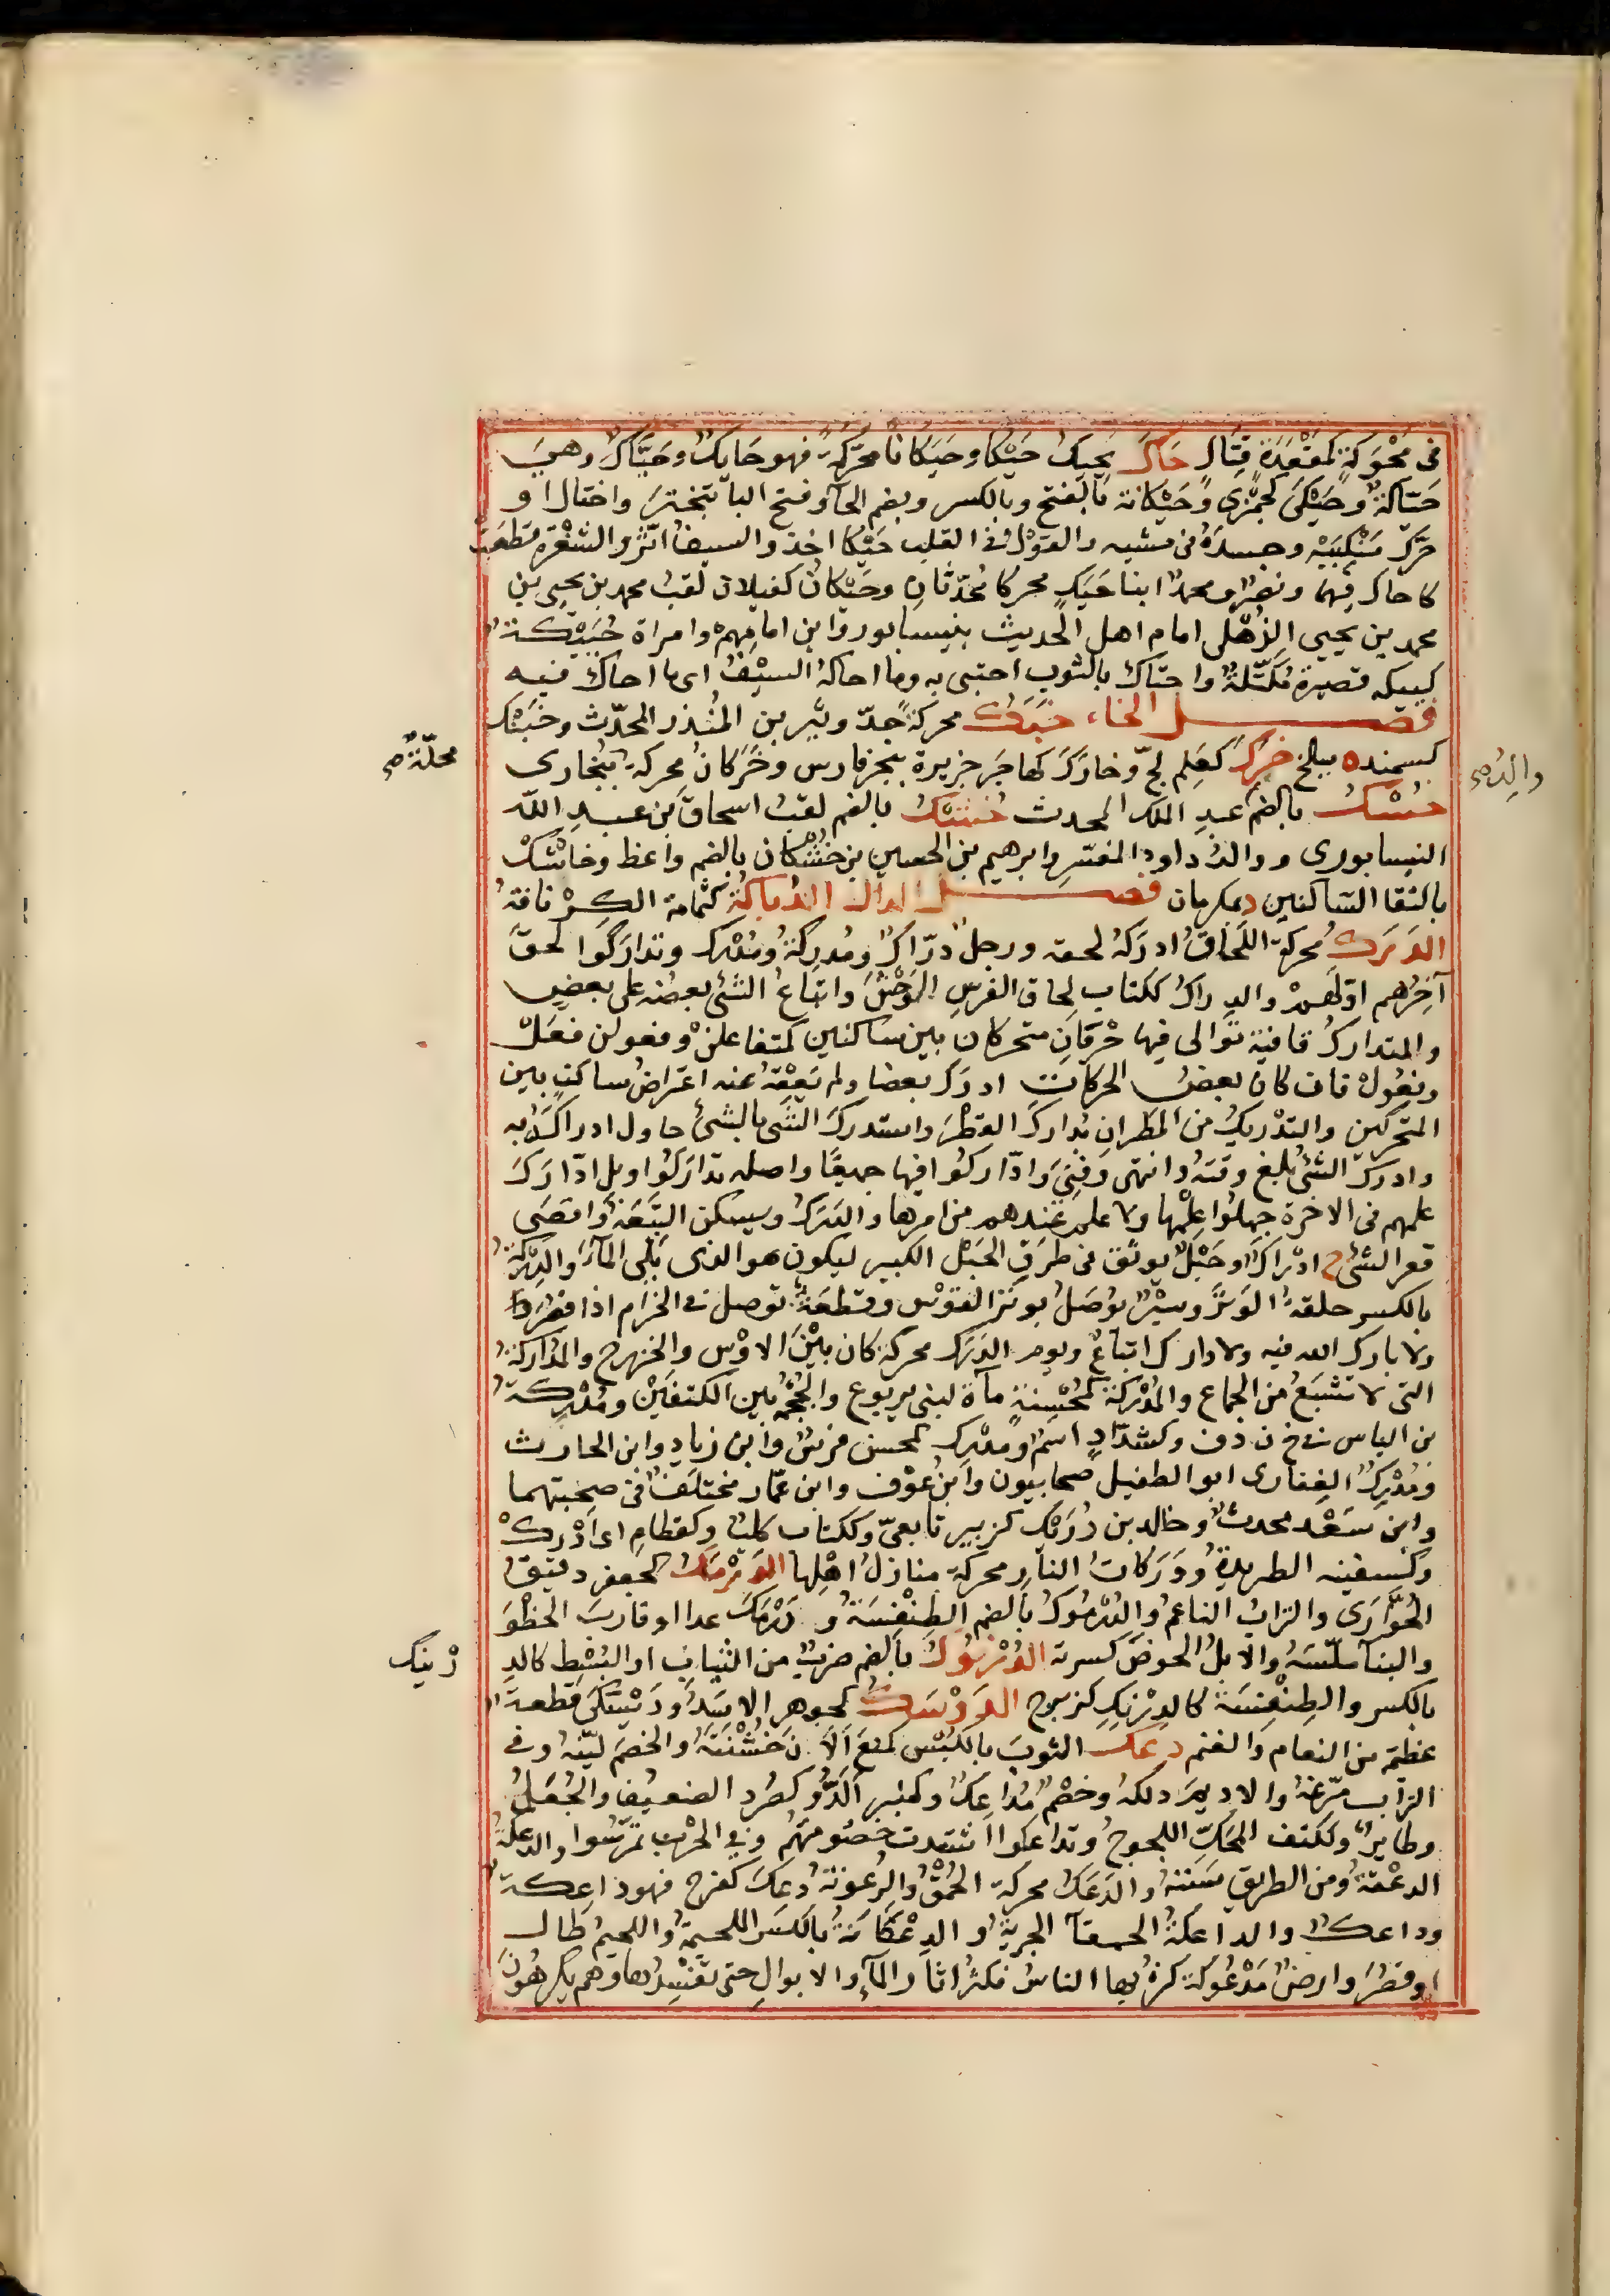 فى مَحْوَكَةٍ كمَقْعَدَةٍ قِتالٍ حَاكَ يَحِيكُ حَيْكًا وحَيَكَانًا محرّكةً فهو حَايِكٌ وحَيَّاكٌ وهِىَ
حَيّاكَةٌ وحَيَكَى كجَمَزَى وحَيْكَانة بالفتح وبالكسر وبضم الحآء وفتح اليا تبختر واختال او
حرّك مَنْكِبَيْه وجسدَهُ فى مشيه والقولُ فى القلب حَيْكًا اخذ والسيفُ اثّر والشفْرَة قطعَتْ
كاحاك فيهما ونصرٌ ومحمدٌ ابنا حَيَكٍ محركا مُحدّثانِ وحَيْكانُ كغيلان لقبُ محمد بن يحيى بن
محمد بن يحيى الذُهْلى امام اهل الحديث بنيسابور وابن امامِهِمْ وامراة حُيَيْكةٌ
كييكه قصيرة مُكَتَّلةٌ واحتاك بالثوب احتبى به وما احاكهُ السيْفُ اى ما احاك فيه
فصل الخاء خَبَكُ محركةً جدّ وثير بن المنذر المحدّث وخَبَنْك
كسمنده ببلخ خَرِكَ كعَلِم لجّ وخارَكَ كهاجَر جزيرة ببحر فارس وخَرَكانُ محركة ببُخارى محلّةٌ صح
خُسْكُ بالضم عبدِ الملك المحدث خُشْكُ بالضم لقبُ اسحاق بن عبدِ الله والِدُ صح
النيسابورى ووالدُ داودَ المفسّر وابرهيم بن الحسين بن خُشْكان بالضم واعظ وخاشْتْك
بالتقا الساكنين د بمكرمان فصل الدال الدُباكة كثُمامة الكِرْنافةُ
الدَرَك محركة اللَحاقُ ادرَكهُ لحقه ورجل درّاكٌ ومُدرِكةٌ ومُدْرِك وتدارَكوا لحقَ
آخِرُهم اوّلَهمْ والدِراكُ ككتاب لِحاق الفرسِ الوَحْشَ واتباعُ الشئ بعضُه على بعضٍ
والمتداركُ قافية توالى فيها حَرْفانِ متحركان بين ساكنين كمتفاعلنْ وفعولن فعَلْ
وفعُولْ قاف كان بعضَ الحركات ادرَك بعضا ولم يَعِقْهُ عنه اعتراضُ ساكنٍ بين
المتحركين والتدْريك من المطران يُدارِكَ القطْرُ واستدركَ الشئ بالشئ حاول ادراكَهُ به
وادرك الشئُ بلغ وقتَهُ وانتهى وفَنِىَ وادّاركُوا فيها جميعًا واصله تدارَكُوا وبل ادّارَكَ
علمهم فى الاخرة جهلُوا عِلْمَها ولا علم عندهم من امرها والدَرَكُ ويسكن التَّبِعَةُ واقصَى
قعر الشئ ج ادْراكٌ وحَبْلٌ يوثق فى طرَفِ الحَبْل الكبير ليكون هو الذى يلى المآءَ والدِرْكةُ
بالكسر حلقةُ الوَتَرِ وسيْرٌ يُوصَلُ بوتَرِ القوْس وقطعَةٌ توصل فى الحزام اذا قصُرَ وَ
لا بارك الله فيه ولا دارك اتباعٌ ويوم الدَرَك محركة كان بيْنَ الاوْس والخزرج والمُدارِكةُ
التى لا تشبَعُ من الجماع والمُدْرِكةُ كمُحْسِنةٍ مآة لبنى يربوع والحُجْمة بين الكتفَيْن ومُدْرِكةُ
بن الياس فى خ ن د ف وكشدّادٍ اسمٌ ومُدْرِك كمحسن فرسٌ وابن زيادٍ وابن الحارث
ومُدْرِكٌ الغِفارى ابو الطفيل صحابيون وابن عوْف وابن عمّار مختلَفٌ فى صحبتهما
وابن سَعْد محدثٌ وخالد بن دُرَيْك كزبير تابعىّ وككتاب كلبٌ وكقطامِ اى ادْرِكْ
وكسفينه الطريدةُ ودَرَكاتُ النار محركة منازلُ اهْلِها الدَرْمَكُ كجعفر دقيقُ
الحُوّارَى والترابُ الناعمُ والدُرْمُوكُ بالضم الطِنْفِسَةُ ودَرْمَكَ عدا او قارب الخطْوَ
والبنآ ملّسَهُ والابلُ الحوضَ كسرته الدُرْنُوكُ بالضم ضربٌ من الثياب او البُسْط كالدِ رْنِيك
بالكسر والطِنْفِسَةُ كالدِرْنِكِ كزبرج الدَوْسَكُ كجوهر الاسَدُ ودَيْسَكَى قطعةٌ
عظيمة من النعام والغنم دعَكَ الثوبَ بالكَبْس كمنَعَ اَلانَ خشُنْتَهُ والخصْمَ ليّنه وفى
التراب مرّغهُ والاديمَ دلكهُ وخصْمٌ مُداعِكٌ وكمِنْبر اَلَدُّ وكصُرد الضعيف والجُعَلُ
وطايرٌ وككتف المحكّ اللجوجُ وتداعكوا اشتدت خصُومتهُم وفى الحرْب تمرّسوا والدعكةُ
الدعْقةُ ومن الطريق سَنَنهُ والدَعَكُ محركة الحُمْقُ والرُعُونة دعِك كفرح فهو داعِكةٌ
وداعكٌ والداعكةُ الحمقآ الجريةُ والدِعْكايَةُ بالكسر اللحيمةُ واللحيمُ طال
اوقصُرَ وارضٌ مَدْعُوكة كثر بها الناسُ فكثر اثار المآءِ والابوالِ حتى تفسِدها وهم يكرهُونَ